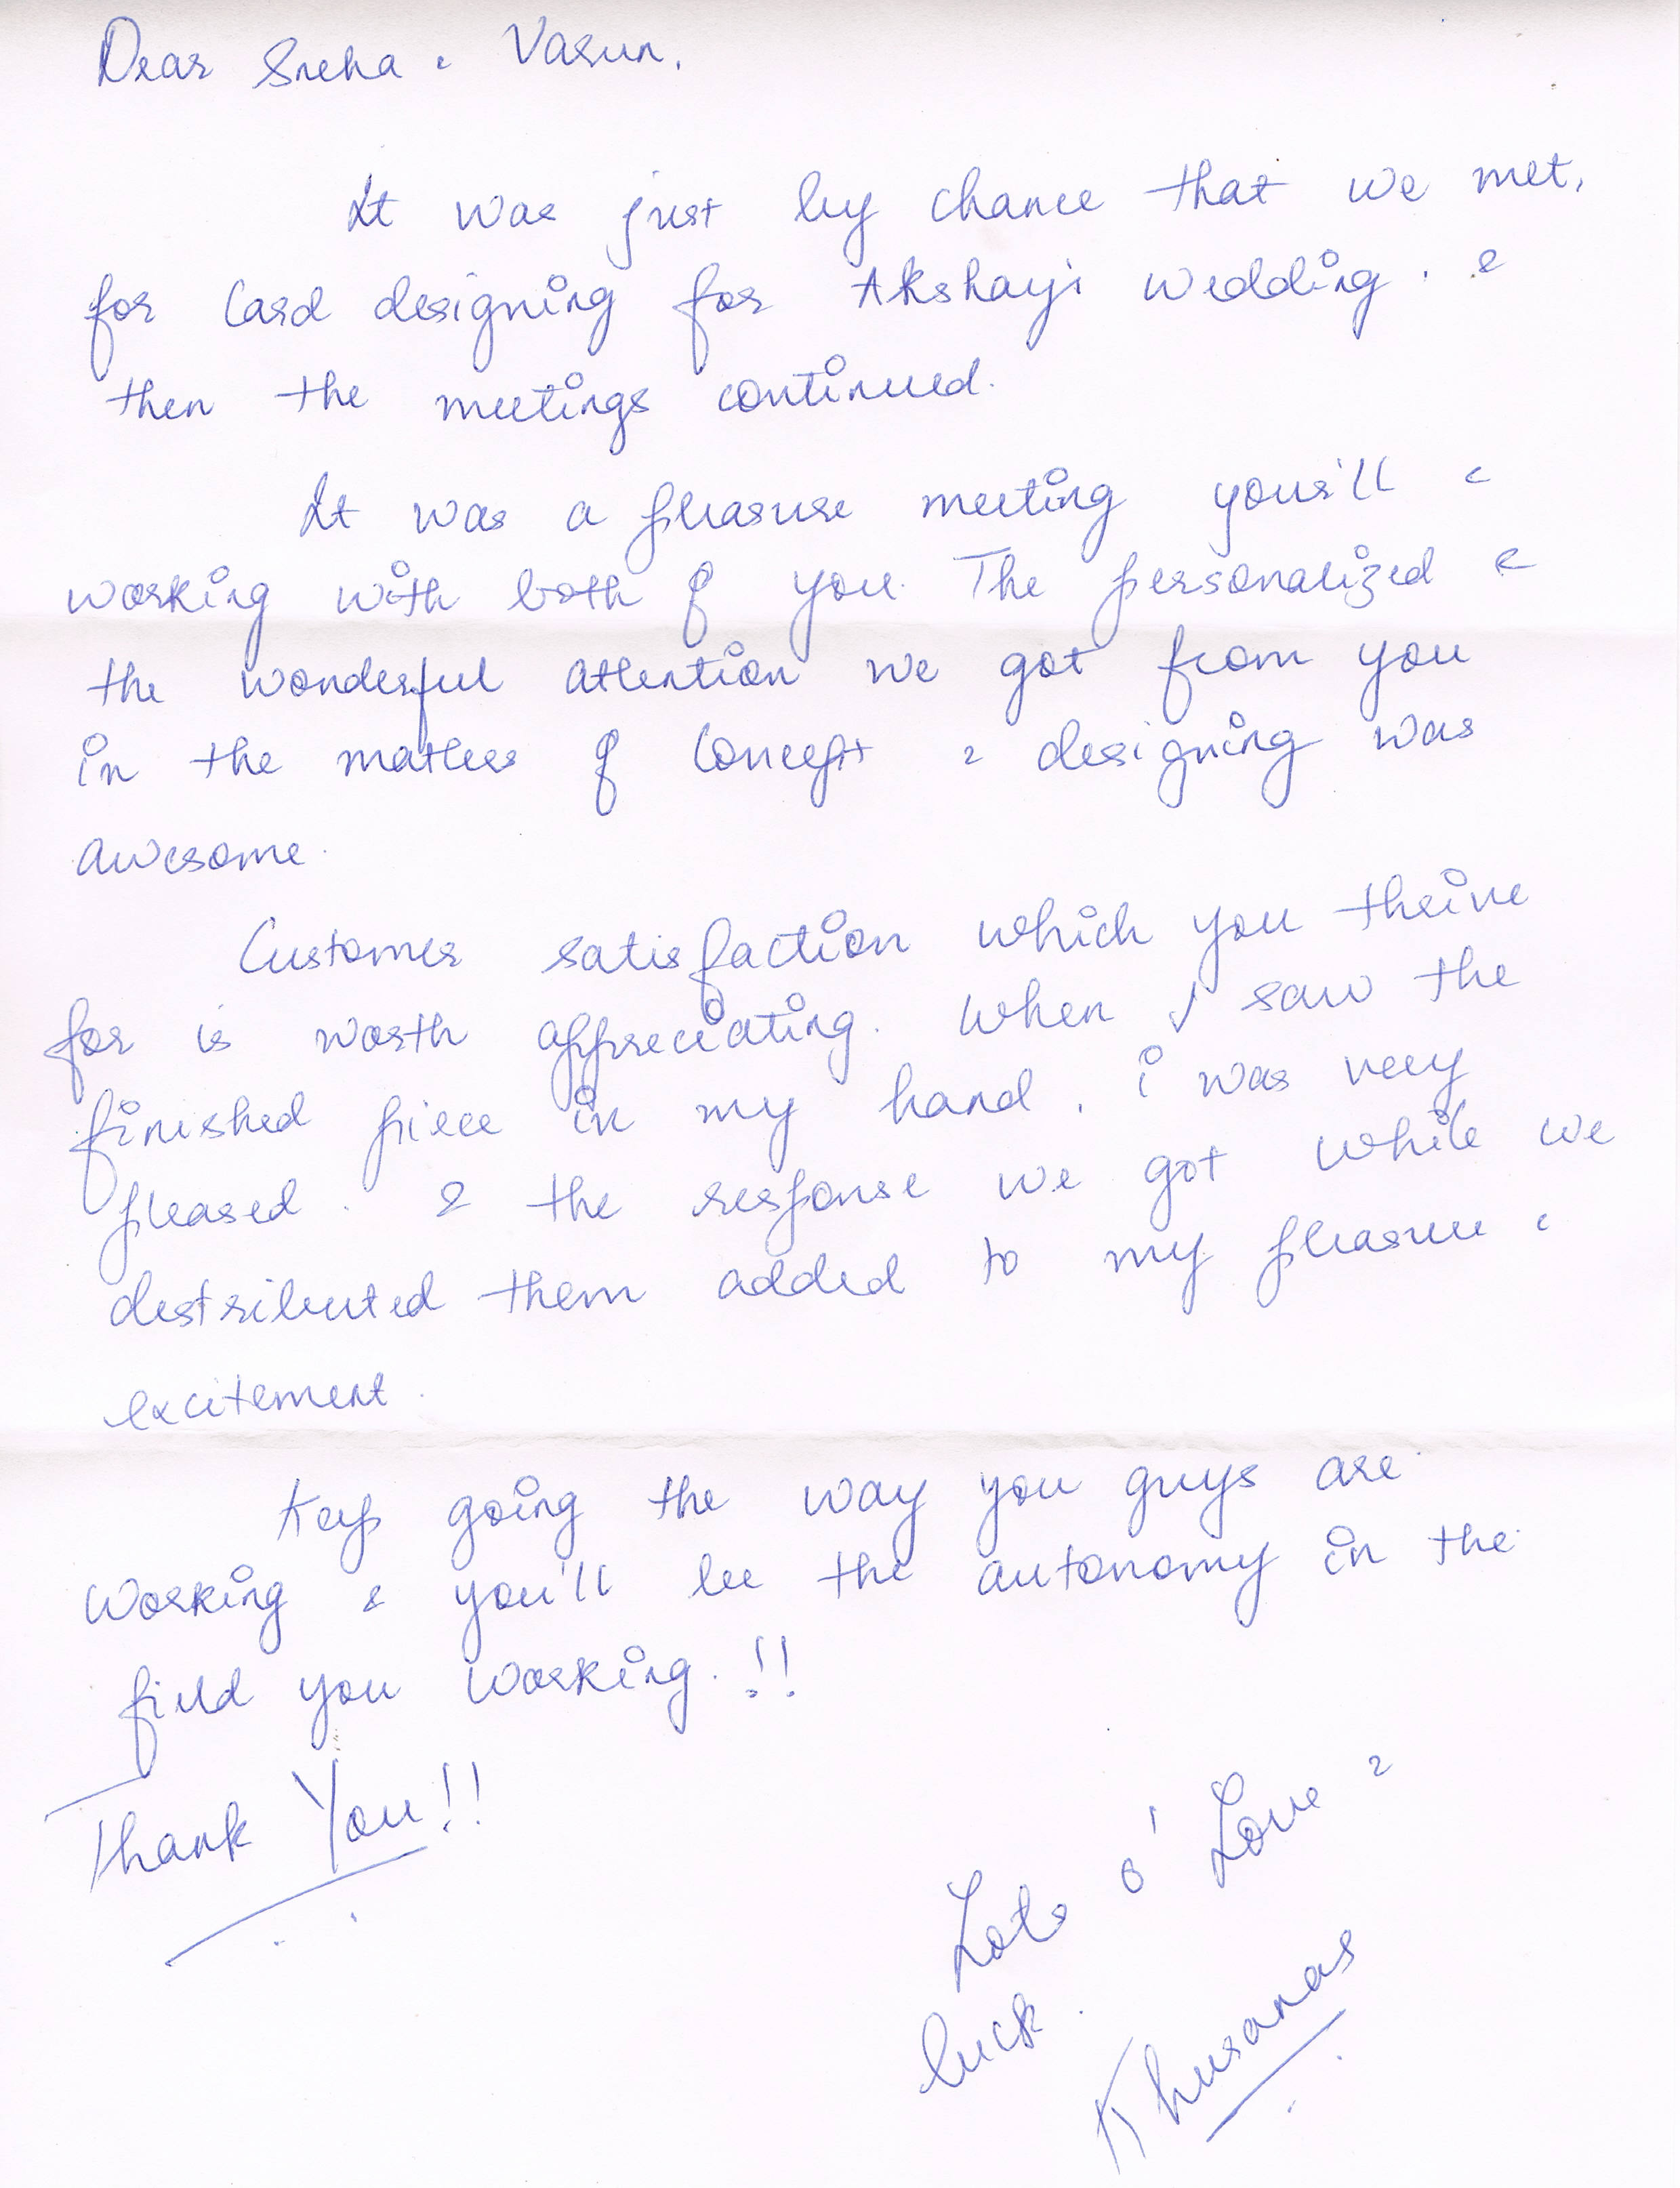 Dear Sneha & Varun,
It was just by chance that we met,
for Card designing for Akshay's wedding. &
then the meetings continued.
It was a pleasure meeting your'll &
working with both of you. The personalized &
the wonderful attention we got from you
in the matters of Concept & designing was
awesome.
Customer satisfaction which you thrive
for is worth appreciating. When I saw the
finished piece in my hand, i was very
pleased. & the response we got while we
distributed them added to my pleasure &
excitement.
Keep going the way you guys are
working & you'll be the autonomy in the
field you working.!!
Thank You!!
Lots o' Love &
luck.
Khuranas